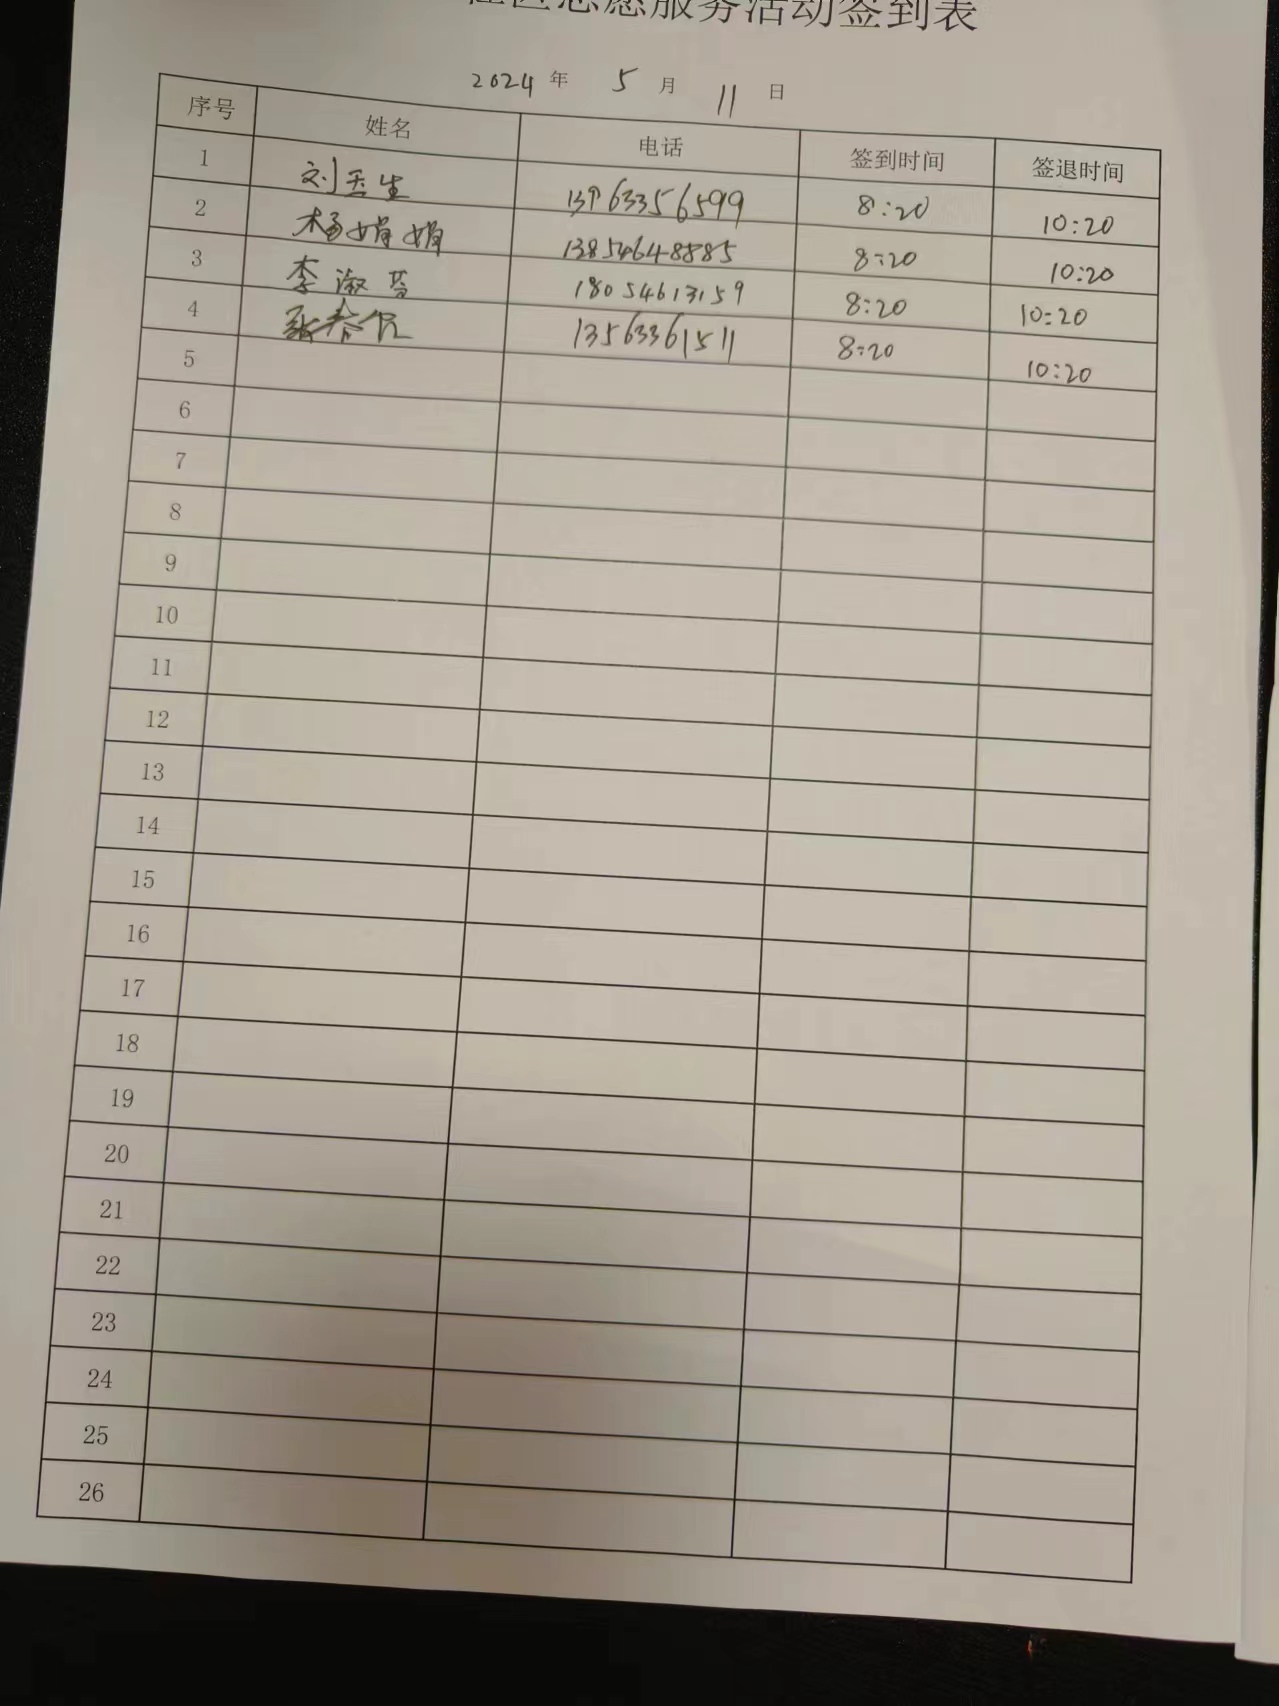 社区志愿服务活动签到表
2024 年 5 月 11 日
序号 姓名 电话 签到时间 签退时间
1 刘玉生 13963356599 8:20 10:20
2 杨娟娟 13854648885 8:20 10:20
3 李淑芬 18054613159 8:20 10:20
4 13563361511 8:20 10:20
5
6
7
8
9
10
11
12
13
14
15
16
17
18
19
20
21
22
23
24
25
26